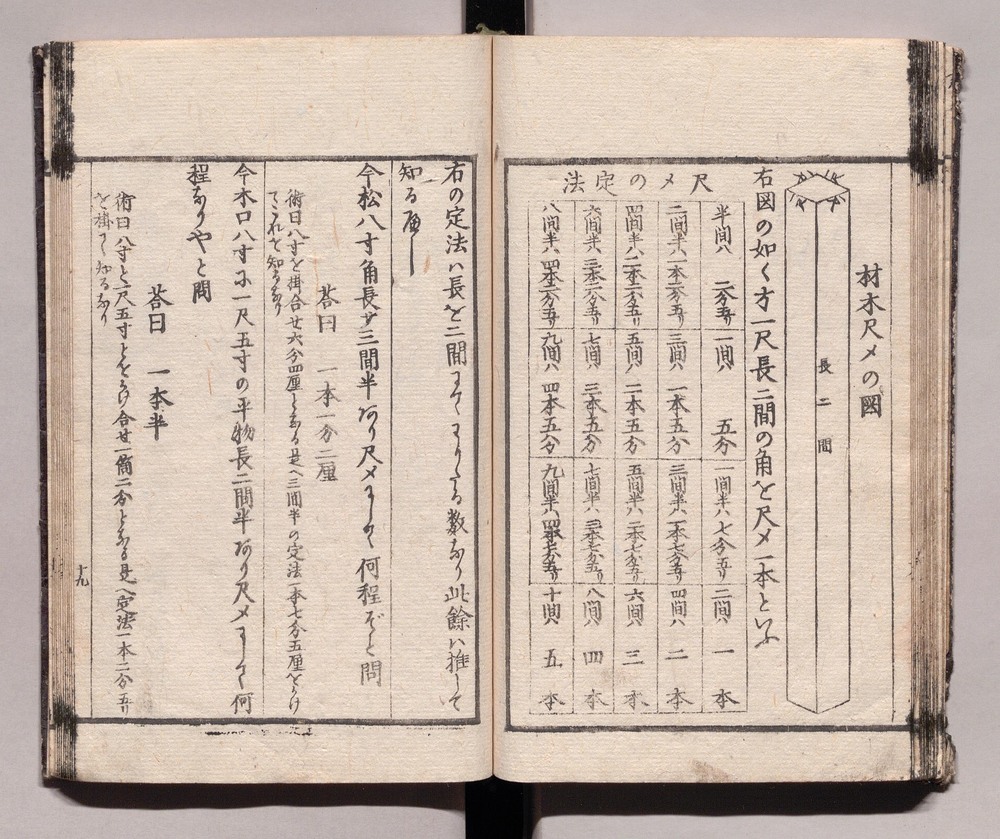 材木尺〆の図
長二間
右図の如く方一尺長二間の角を尺〆一本といふ
尺〆の定法
半間ハ 二分五り
一間ハ 五分
一間半ハ 七分五り
二間ハ 一本
二間半ハ 一本二分五り
三間ハ 一本五分
三間半ハ 一本七分五り
四間ハ 二本
四間半ハ 二本二分五り
五間ハ 二本五分
五間半ハ 二本七分五り
六間ハ 三本
六間半ハ 三本二分五り
七間ハ 三本五分
七間半ハ 三本七分五り
八間ハ 四本
八間半ハ 四本二分五り
九間ハ 四本五分
九間半ハ 四本七分五り
十間ハ 五本
右の定法ハ長を二間にて わりたる数なり此餘ハ推して
知るべし
今松八寸角長サ三間半あり尺〆にして何程ぞと問
答曰 一本一分二厘
術曰八寸を掛合せ六分四厘となる是へ三間半の定法一本七分五厘をかけ
てこれを知るなり
今木口八寸に一尺五寸の平物長二間半あり尺〆にして何
程なりやと問
答曰 一本半
術曰八寸と一尺五寸とをかけ合せ一箇二分となる是へ定法一本二分五り
を掛て知るなり
十九